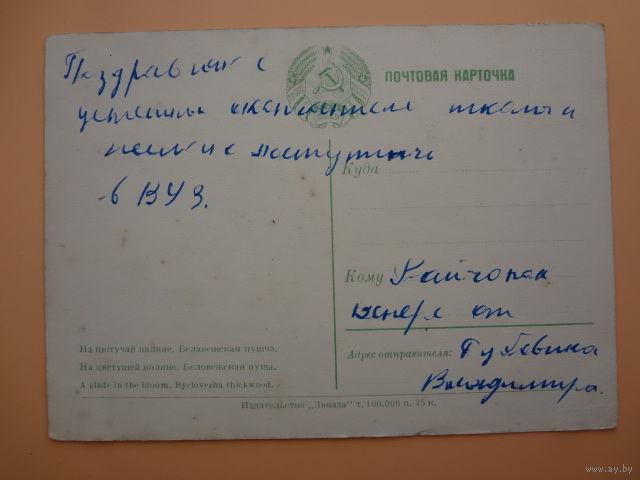 Поздравляю с
успешным окончанием школы и
в ВУЗ.
ПОЧТОВАЯ КАРТОЧКА
Куда
Кому
от
Адрес отправителя:
Владимира.
На цвітучай паляне. Белавежская пушча.
На цветущей поляне. Беловежская пуща.
A glade in the bloom. Byelovezha thickwood.
Издательство „Звязда" т. 100,000 ц. 25 к.
www.ay.by